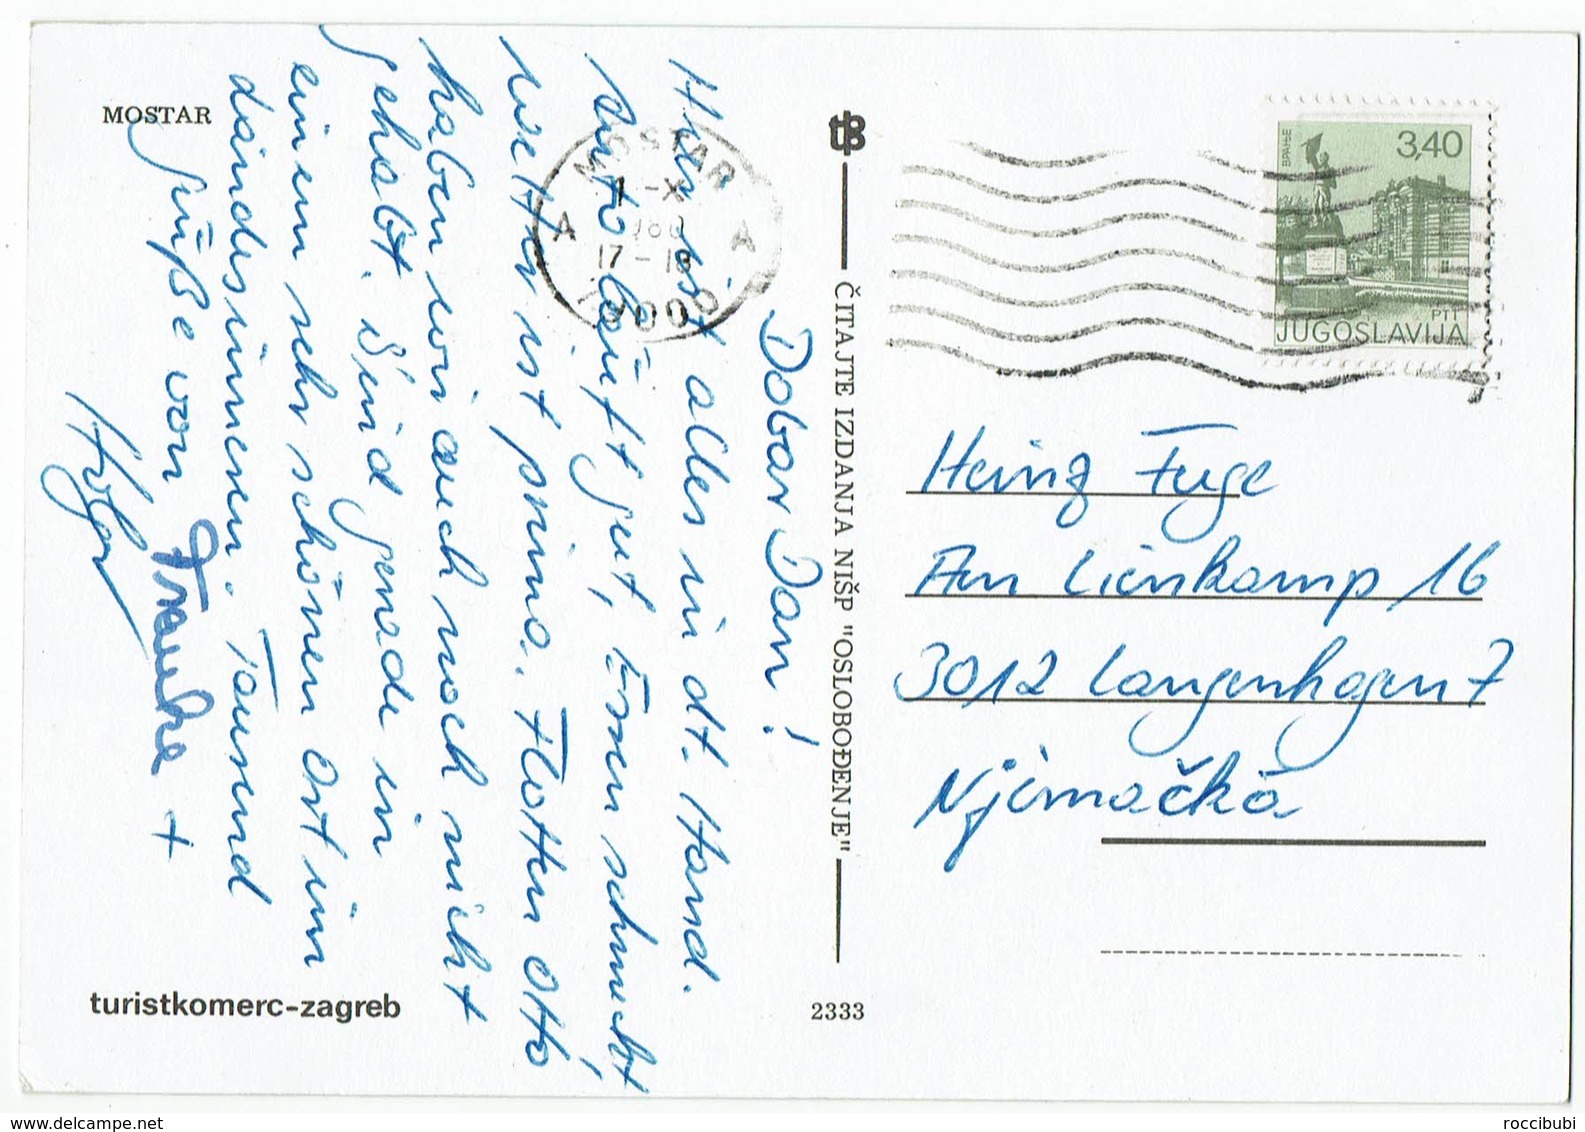 MOSTAR
Dobar Dan!
Hier ist alles in dt. Hand.
Auto läuft gut, Essen schmeckt
Wetter ist prima. Flotten Otto
haben wir auch noch nicht
gehabt. Sind gerade in
einem sehr schönen Ort im
Landesinneren. Tausend
Grüße von Frauke +
Holger
turistkomerc-zagreb
ČITAJTE IZDANJA NIŠP "OSLOBOĐENJE"
2333
MOSTAR
A A
-X
17-18
3,40
PTT
JUGOSLAVIJA
Heinz Fuge
Am Lienkamp 16
3012 Langenhagen 7
Njemačka
www.delcampe.net
roccibubi